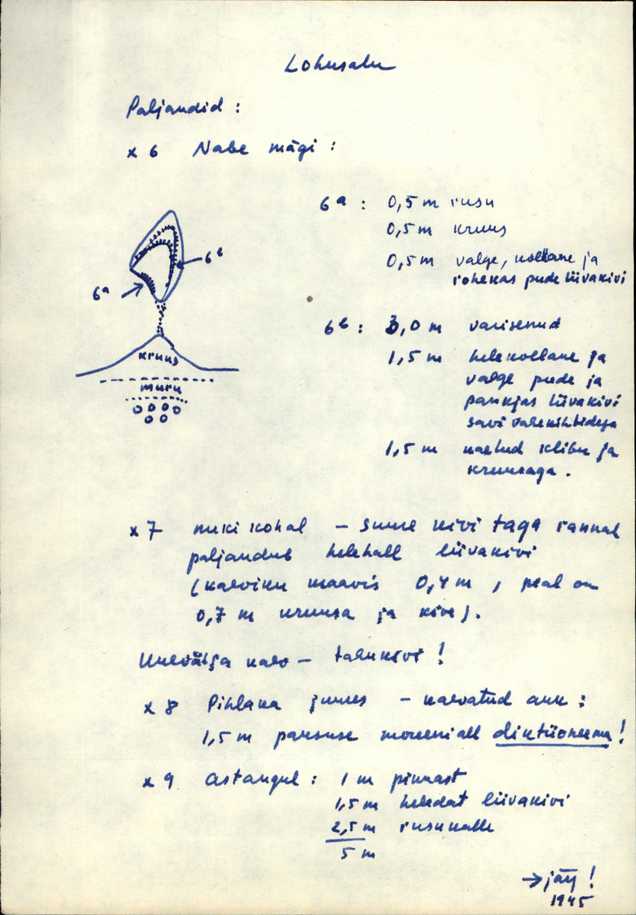 Lohusalu
Paljandid :
x 6 Nabe mägi :
6a : 0,5 m rusu
0,5 m kruus
0,5 m valge, kollane ja
rohekas pude liivakivi
6b
6a
kruus
muru
6b : 3,0 m varisenud
1,5 m helekollane ja
valge pude ja
paksujas liivakivi
savi vahekihtidega
1,5 m kaetud klibu ja
kruusaga .
x 7 nuki kohal – suure kivi taga rannal
paljandub helehall liivakivi
(kaeviku maavis 0,4 m , peal on
0,7 m kruusa ja kive).
karv – talukivi !
x 8 Pihlaka juures – kaevatud auk :
1,5 m paksuse moreeni all diktüoneema !
x 9 astangul : 1 m pinnast
1,5 m heledat liivakivi
2,5 m rusukalle
5 m
→ järg !
1945